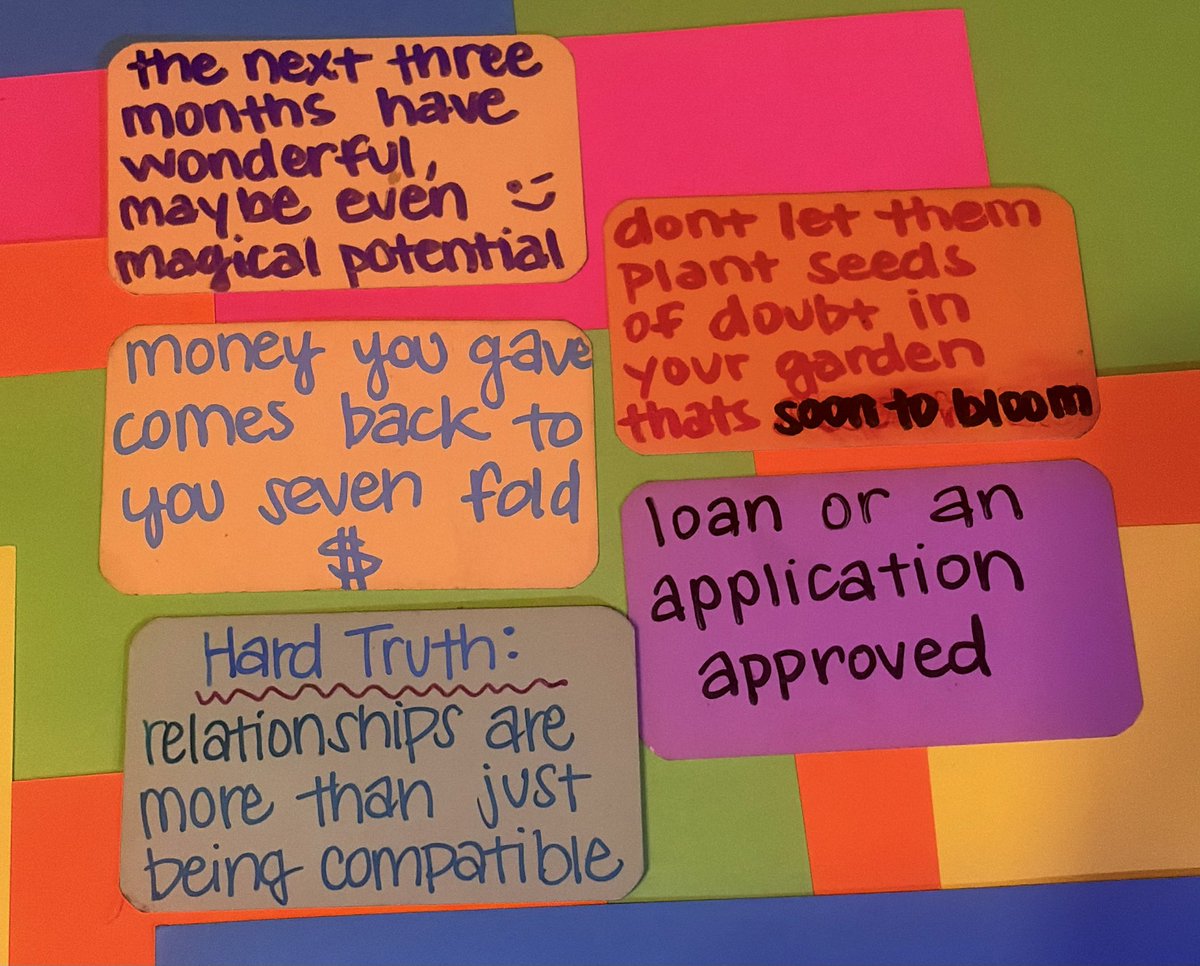 the next three
months have
wonderful,
maybe even
magical potential
dont let them
plant seeds
of doubt in
your garden
thats soon to bloom
money you gave
comes back to
you seven fold
$
loan or an
application
approved
Hard Truth:
relationships are
more than just
being compatible